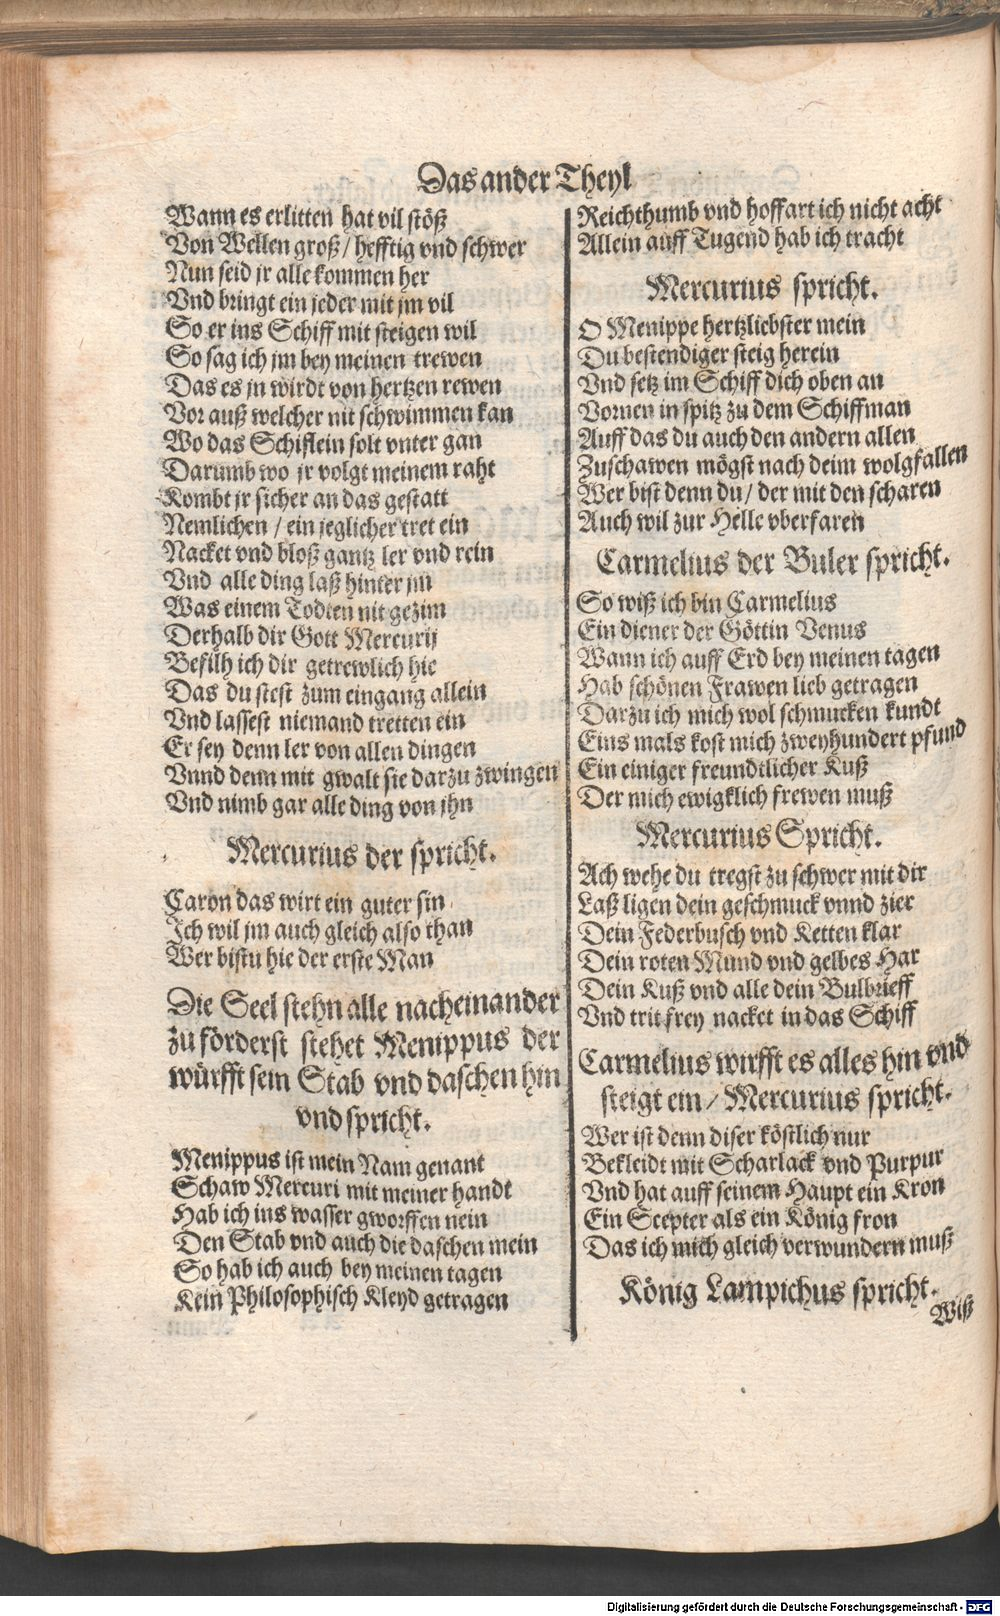 Das ander Theyl
Wann es erlitten hat vil stöß
Von Wellen groß / hefftig vnd schwer
Nun seid jr alle kommen her
Vnd bringt ein jeder mit jm vil
So er ins Schiff mit steigen wil
So sag ich jm bey meinen trewen
Das es jn wirdt von hertzen rewen
Vor auß welcher nit schwimmen kan
Wo das Schiflein solt vnter gan
Darumb wo jr volgt meinem raht
Kombt jr sicher an das gestatt
Nemlichen / ein jeglicher tret ein
Nacket vnd bloß gantz ler vnd rein
Vnd alle ding laß hinter jm
Was einem Todten nit gezim
Derhalb dir Gott Mercurij
Befilh ich dir getrewlich hie
Das du stest zum eingang allein
Vnd lassest niemand tretten ein
Er sey denn ler von allen dingen
Vnnd denn mit gwalt sie darzu zwingen
Vnd nimb gar alle ding von jhn
Mercurius der spricht.
Caron das wirt ein guter sin
Ich wil jm auch gleich also than
Wer bistu hie der erste Man
Die Seel stehn alle nacheinander
zu förderst stehet Menippus der
würfft sein Stab vnd daschen hin
vnd spricht.
Menippus ist mein Nam genant
Schaw Mercuri mit meiner handt
Hab ich ins wasser gworffen nein
Den Stab vnd auch die daschen mein
So hab ich auch bey meinen tagen
Kein Philosophisch Kleyd getragen
Reichthumb vnd hoffart ich nicht acht
Allein auff Tugend hab ich tracht
Mercurius spricht.
O Menippe hertzliebster mein
Du bestendiger steig herein
Vnd setz im Schiff dich oben an
Vornen in spitz zu dem Schiffman
Auff das du auch den andern allen
Zuschawen mögst nach deim wolgfallen
Wer bist denn du / der mit den scharen
Auch wil zur Helle vberfaren
Carmelius der Buler spricht.
So wiß ich bin Carmelius
Ein diener der Göttin Venus
Wann ich auff Erd bey meinen tagen
Hab schönen Frawen lieb getragen
Darzu ich mich wol schmucken kundt
Eins mals kost mich zweyhundert pfund
Ein einiger freundtlicher Kuß
Der mich ewigklich frewen muß
Mercurius Spricht.
Ach wehe du tregst zu schwer mit dir
Laß ligen dein geschmuck vnnd zier
Dein Federbusch vnd Ketten klar
Dein roten Mund vnd gelbes Har
Dein Kuß vnd alle dein Bulbrieff
Vnd trit frey nacket in das Schiff
Carmelius wirfft es alles hin vnd
steigt ein / Mercurius spricht.
Wer ist denn diser köstlich nur
Bekleidt mit Scharlack vnd Purpur
Vnd hat auff seinem Haupt ein Kron
Ein Scepter als ein König fron
Das ich mich gleich verwundern muß
König Lampichus spricht.
Wiß
Digitalisierung gefördert durch die Deutsche Forschungsgemeinschaft - DFG